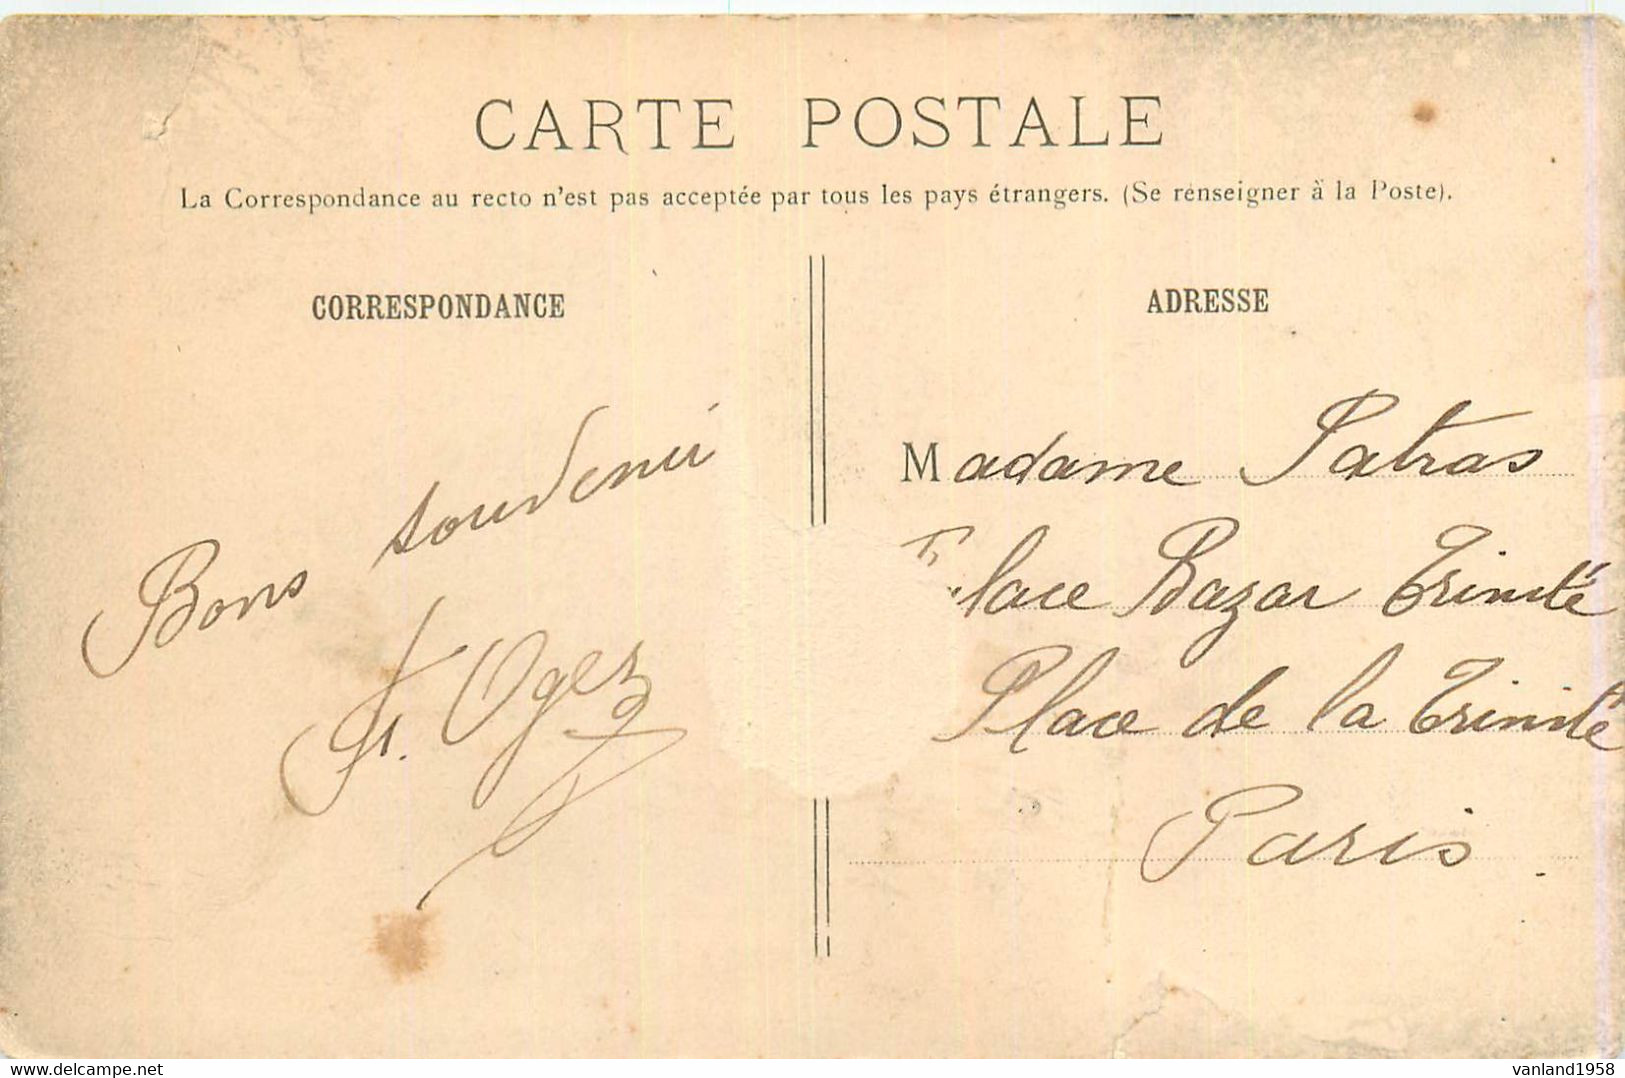 CARTE POSTALE
La Correspondance au recto n'est pas acceptée par tous les pays étrangers. (Se renseigner à la Poste).
CORRESPONDANCE
Bons souvenir
Fr. Ogez
ADRESSE
Madame Patras
Place Bazar Trinité
Place de la Trinité
Paris.
www.delcampe.net
vanland1958